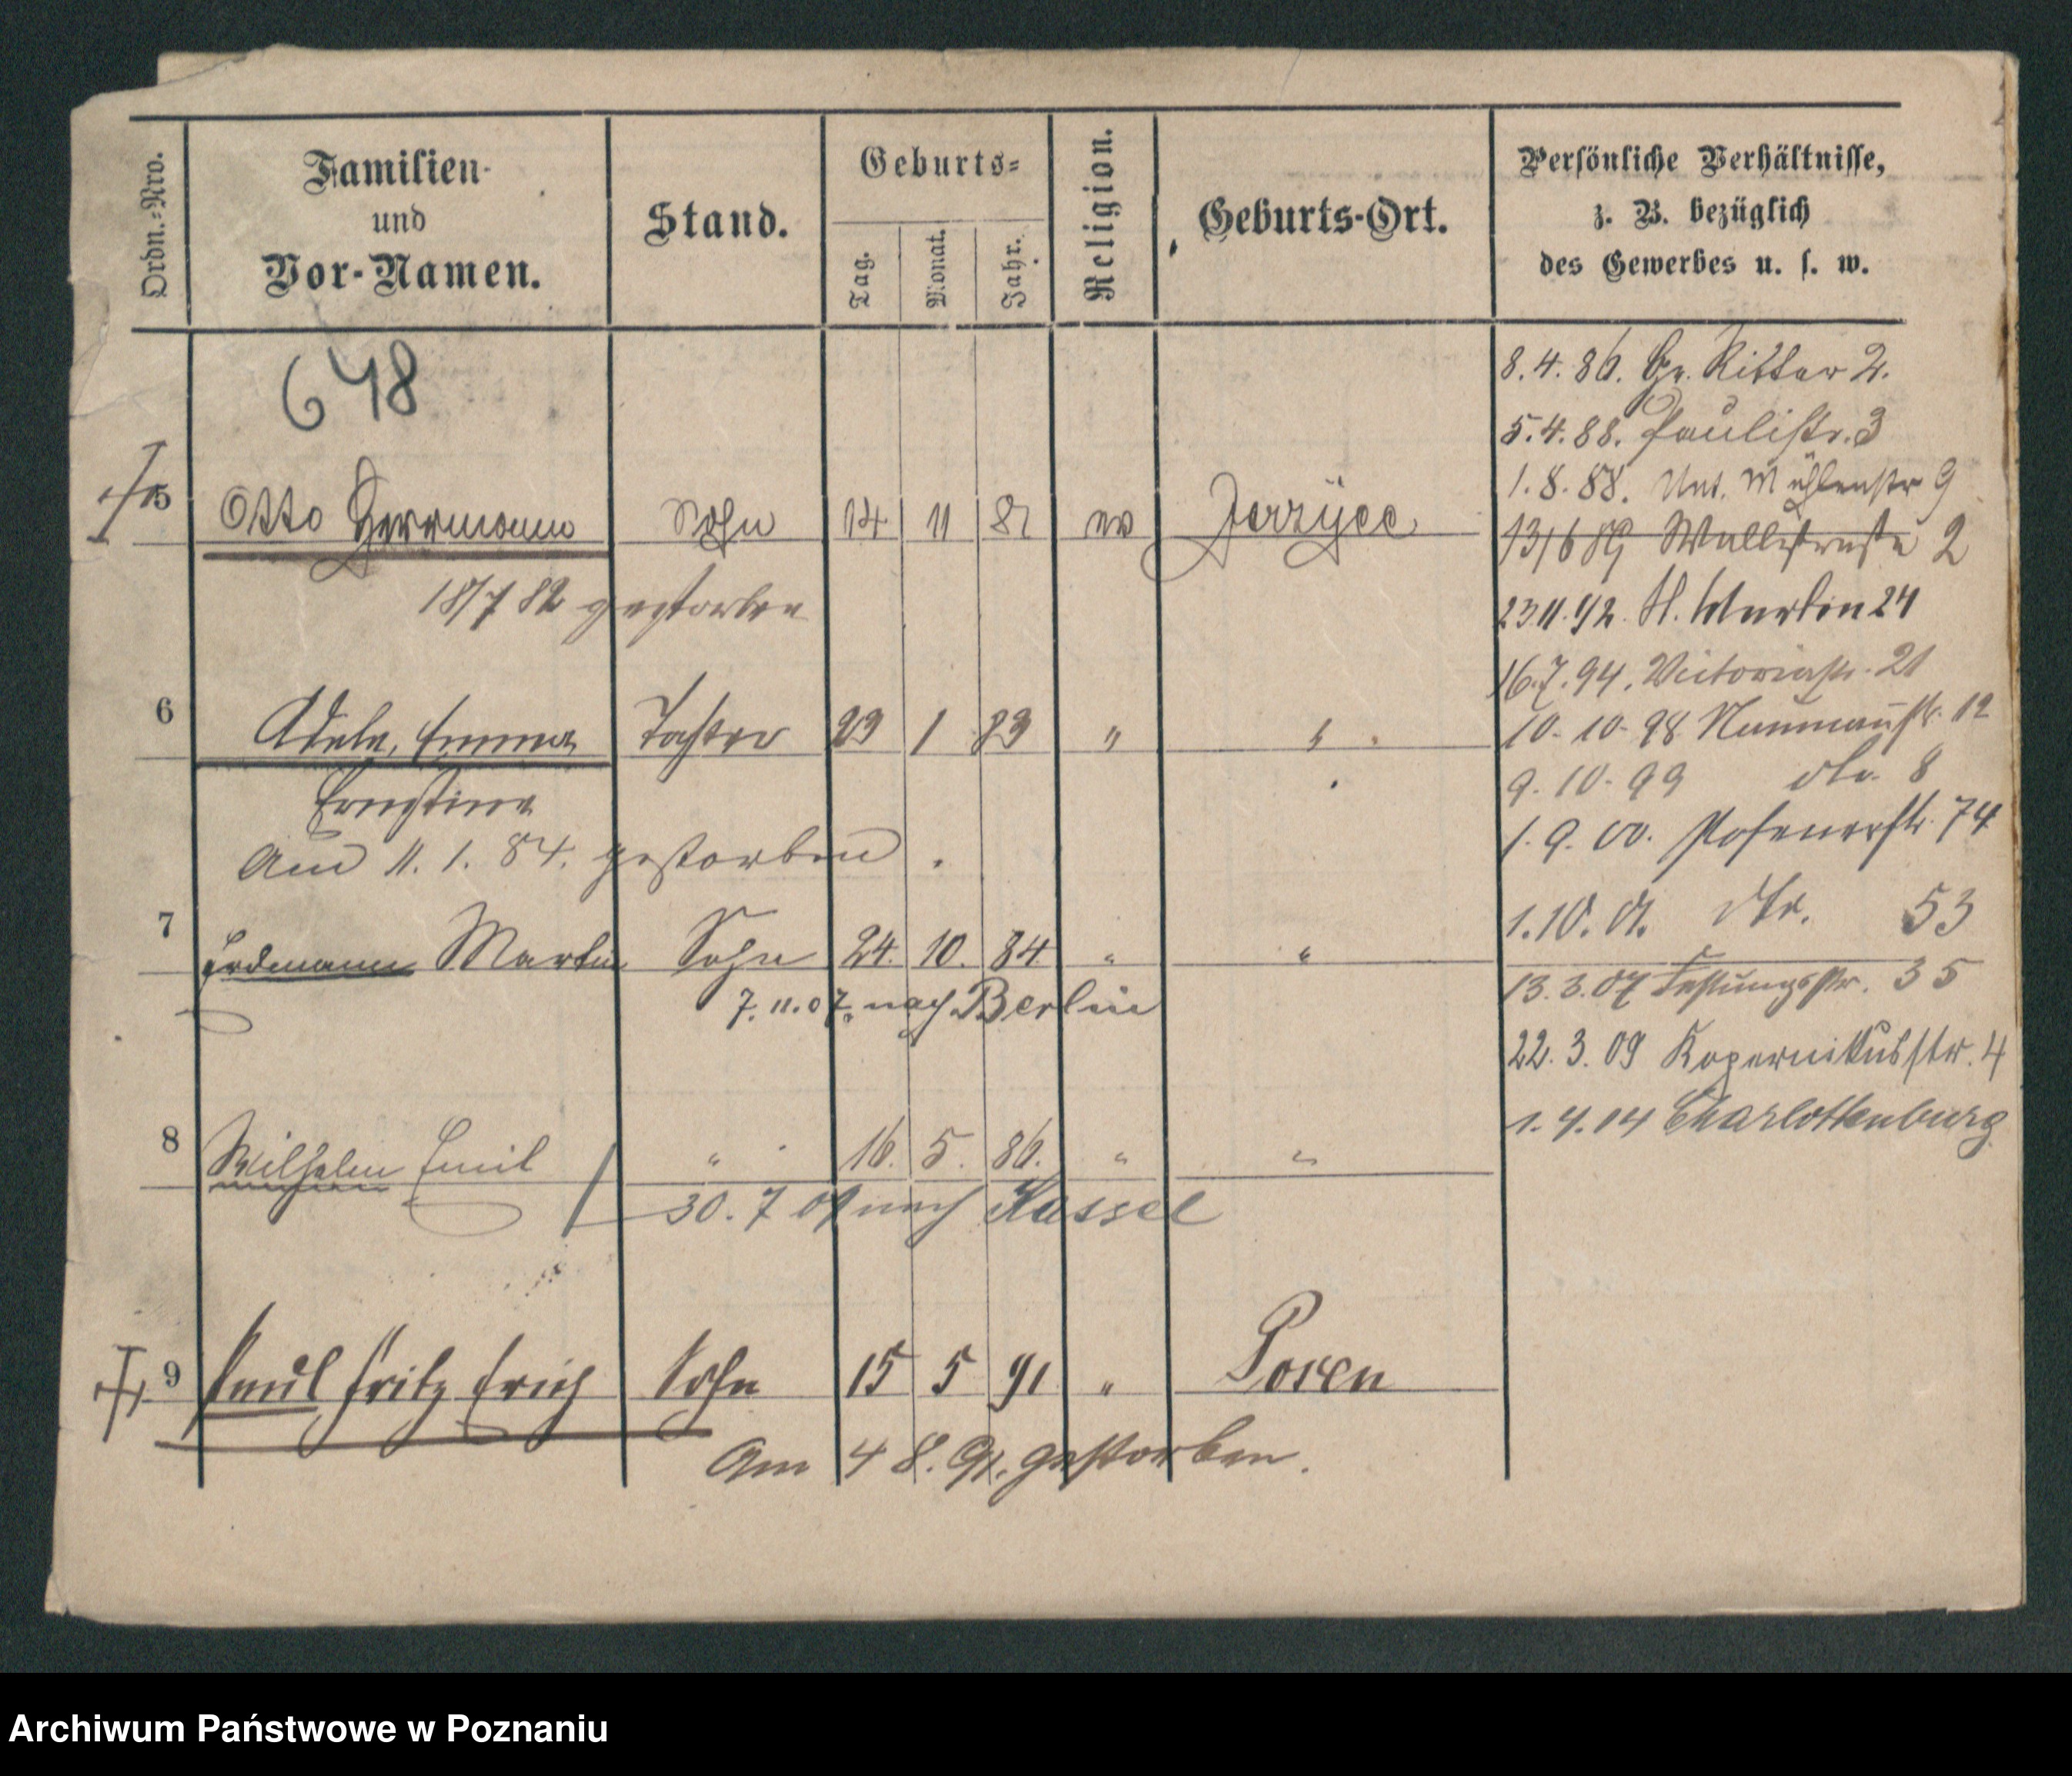 Ordn.-Nro.
Familien-
und
Vor-Namen.
Stand.
Geburts-
Tag.
Monat.
Jahr.
Religion.
Geburts-Ort.
Persönliche Verhältnisse,
z. B. bezüglich
des Gewerbes u. s. w.
648
8.4.86. Gr. Ritter 2.
5.4.88. Paulistr. 3
1.8.88. Unt. Mühlenstr 9
5 Otto Herrmann Sohn 14 11 81 ev Jerzyce
13/6 89 Wallstraße 2
18/7 82 gestorben
23.11.92. St. Martin 24
16.7.94. Victoriastr. 21
6 Adele, Emma Tochter 23 1 83 " "
10.10.98 Naumannstr. 12
Ernestine
9.10.99 dto. 8
Am 11. 1. 84. gestorben.
1.9.00. Posenerstr. 74
7 Erdmann Martin Sohn 24. 10. 84 " "
1.10.01. dto. 53
7.11.07. nach Berlin
13.3.07 Festungsstr. 35
22.3.09 Kopernikusstr. 4
8 Wilhelm Emil " 16. 5. 86. " "
1.4.14 Charlottenburg
30.7 nach Kassel
9 Paul Fritz Erich Sohn 15 5 91 " Posen
Am 4 8. 91. gestorben.
Archiwum Państwowe w Poznaniu